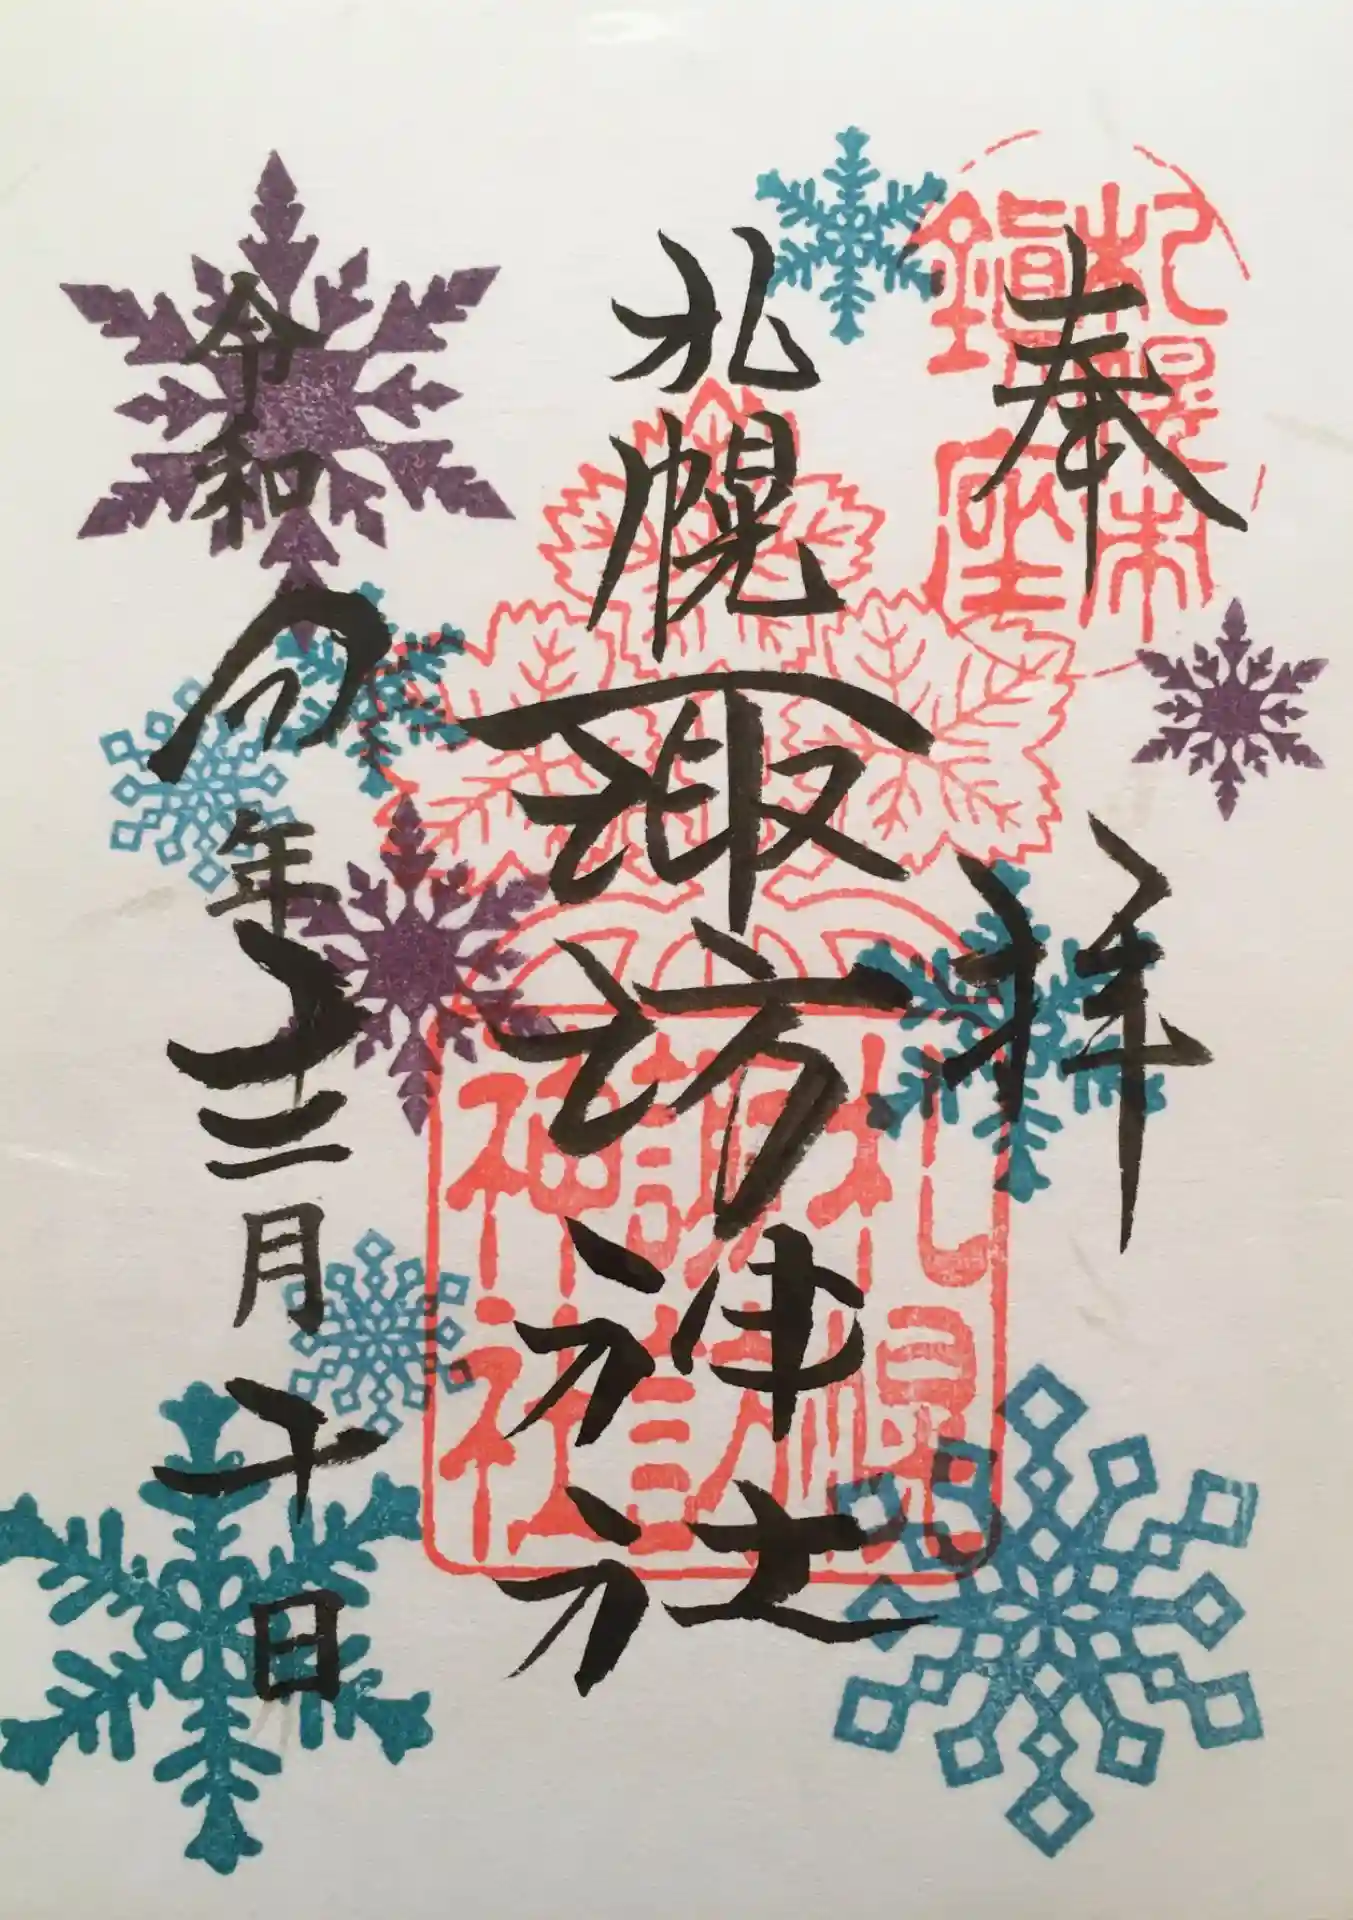 奉拝
札幌諏訪神社
令和四年十二月十日
札幌
鎮座
札幌
諏訪
神社